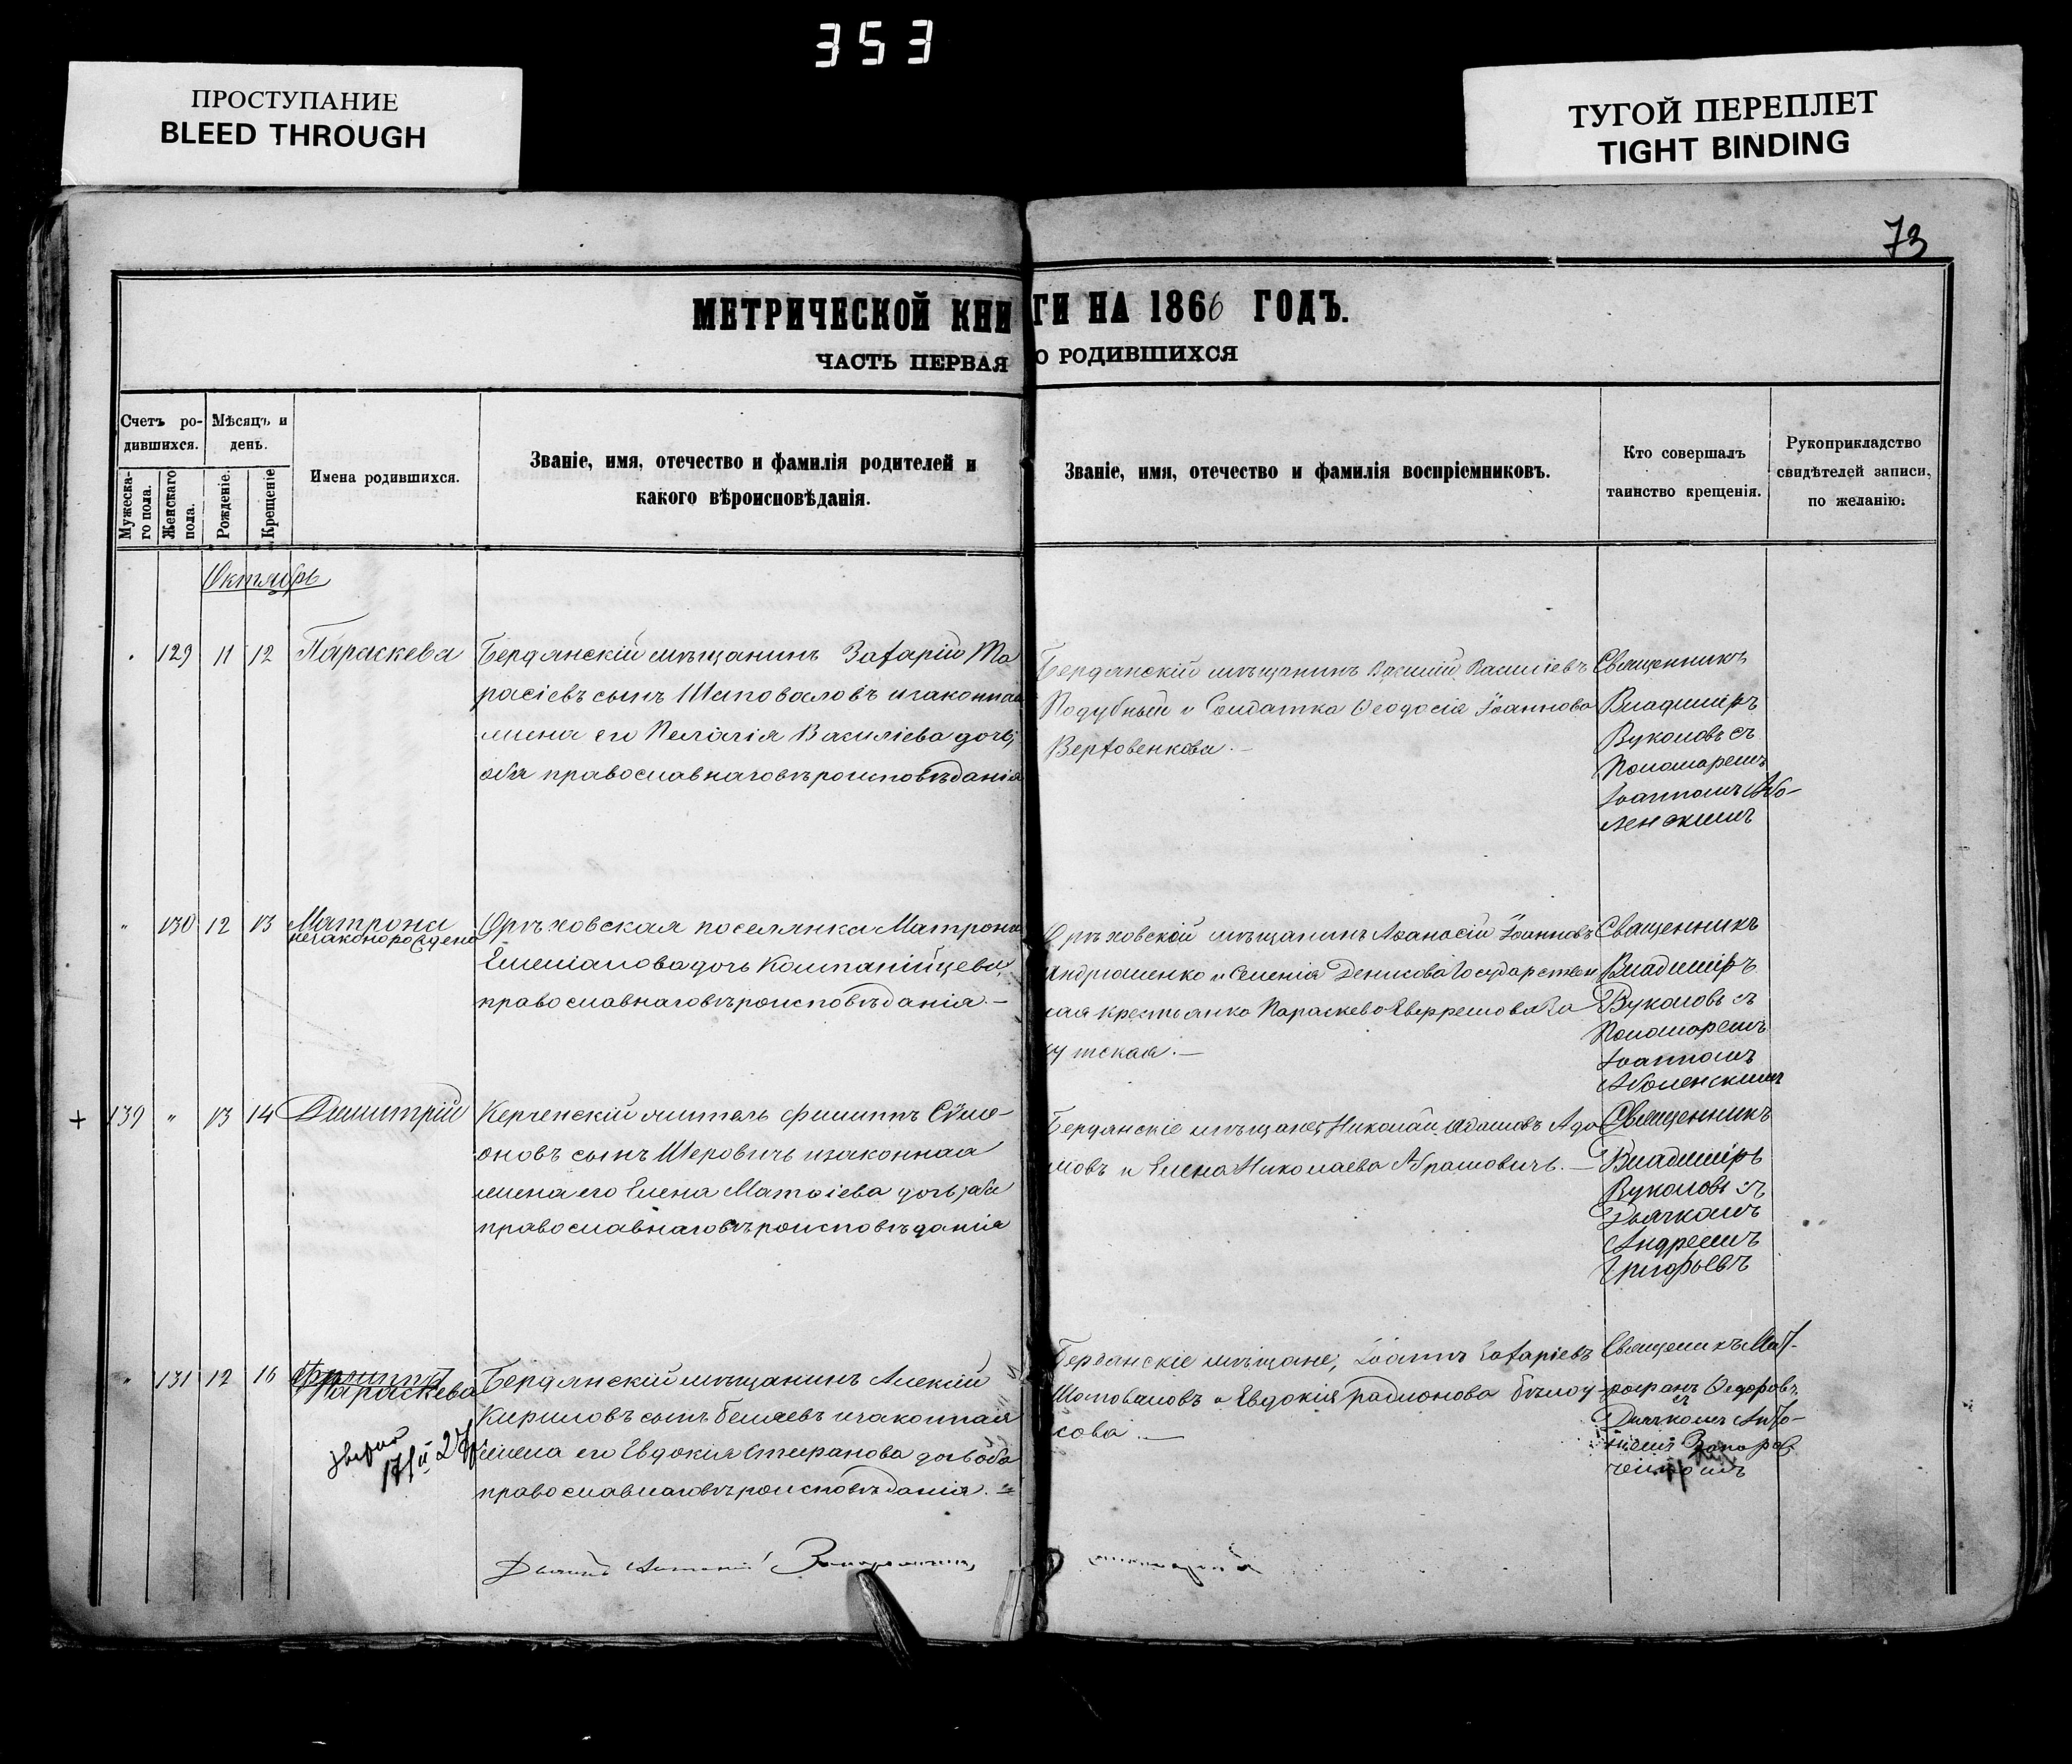 353
ПРОСТУПАНИЕ
BLEED THROUGH
ТУГОЙ ПЕРЕПЛЕТ
TIGHT BINDING
73
МЕТРИЧЕСКОЙ КНИГИ НА 1866 ГОДЪ.
ЧАСТЬ ПЕРВАЯ О РОДИВШИХСЯ
Счетъ ро-
дившихся.
Мужеска-
го пола.
Женскаго
пола.
Мѣсяцъ и
день.
Рожденіе.
Крещеніе
Имена родившихся.
Званіе, имя, отечество и фамилія родителей и
какого вѣроисповѣданія.
Званіе, имя, отечество и фамилія воспріемниковъ.
Кто совершалъ
таинство крещенія.
Рукоприкладство
свидѣтелей записи,
по желанію.
Октябрь
129 11 12 Параскева
Бердянскій мѣщанинъ Захарій Та
расіевъ сынъ Шаповаловъ и законная
жена его Пелагія Василіева дочь,
оба православнаго вѣроисповѣданія
Бердянскій мѣщанинъ Василій Василіевъ
Подубный и Солдатка Ѳеодосія Іоаннова
Вертовенкова. —
Священникъ
Владиміръ
Вуколовъ съ
Пономаремъ
Іоанномъ Або-
ленскимъ
" 130 12 13 Матрона
незаконорождена
Орѣховская поселянка Матрона
Емеліанова дочь Компанійцева,
православнаго вѣроисповѣданія. —
Орѣховскій мѣщанинъ Аѳанасій Іоанновъ
Андрюшенко и Денисова Государствен
ная крестьянка Параскева
Священникъ
Владиміръ
Вуколовъ съ
Пономаремъ
Іоанномъ
Аболенскимъ
+ 139 " 13 14 Димитрій
Керченскій житель Филиппъ Сѵме-
оновъ сынъ Шеровичъ и законная
жена его Елена Матѳіева дочь, оба
православнаго вѣроисповѣданія
Бердянскіе мѣщане Николай Адамовъ Ада
мовъ и Елена Николаева Абрамовичъ. —
Священникъ
Владиміръ
Вуколовъ съ
Дьячкомъ
Андреемъ
Григорьевъ
" 131 12 16
Параскева
Бердянскій мѣщанинъ Алексій
Кириловъ сынъ Беляевъ и законная
жена его Евдокія Стефанова дочь оба
православнаго вѣроисповѣданія. —
Бердянскіе мѣщане, Іоаннъ Захаріевъ
Шаповаловъ и Евдокія Радионова Бѣлоу
сова. —
Священикъ Мит-
рофанъ Ѳедоровъ
съ
Дьячкомъ Анто-
ніемъ Запорож
Дьячекъ Антоній